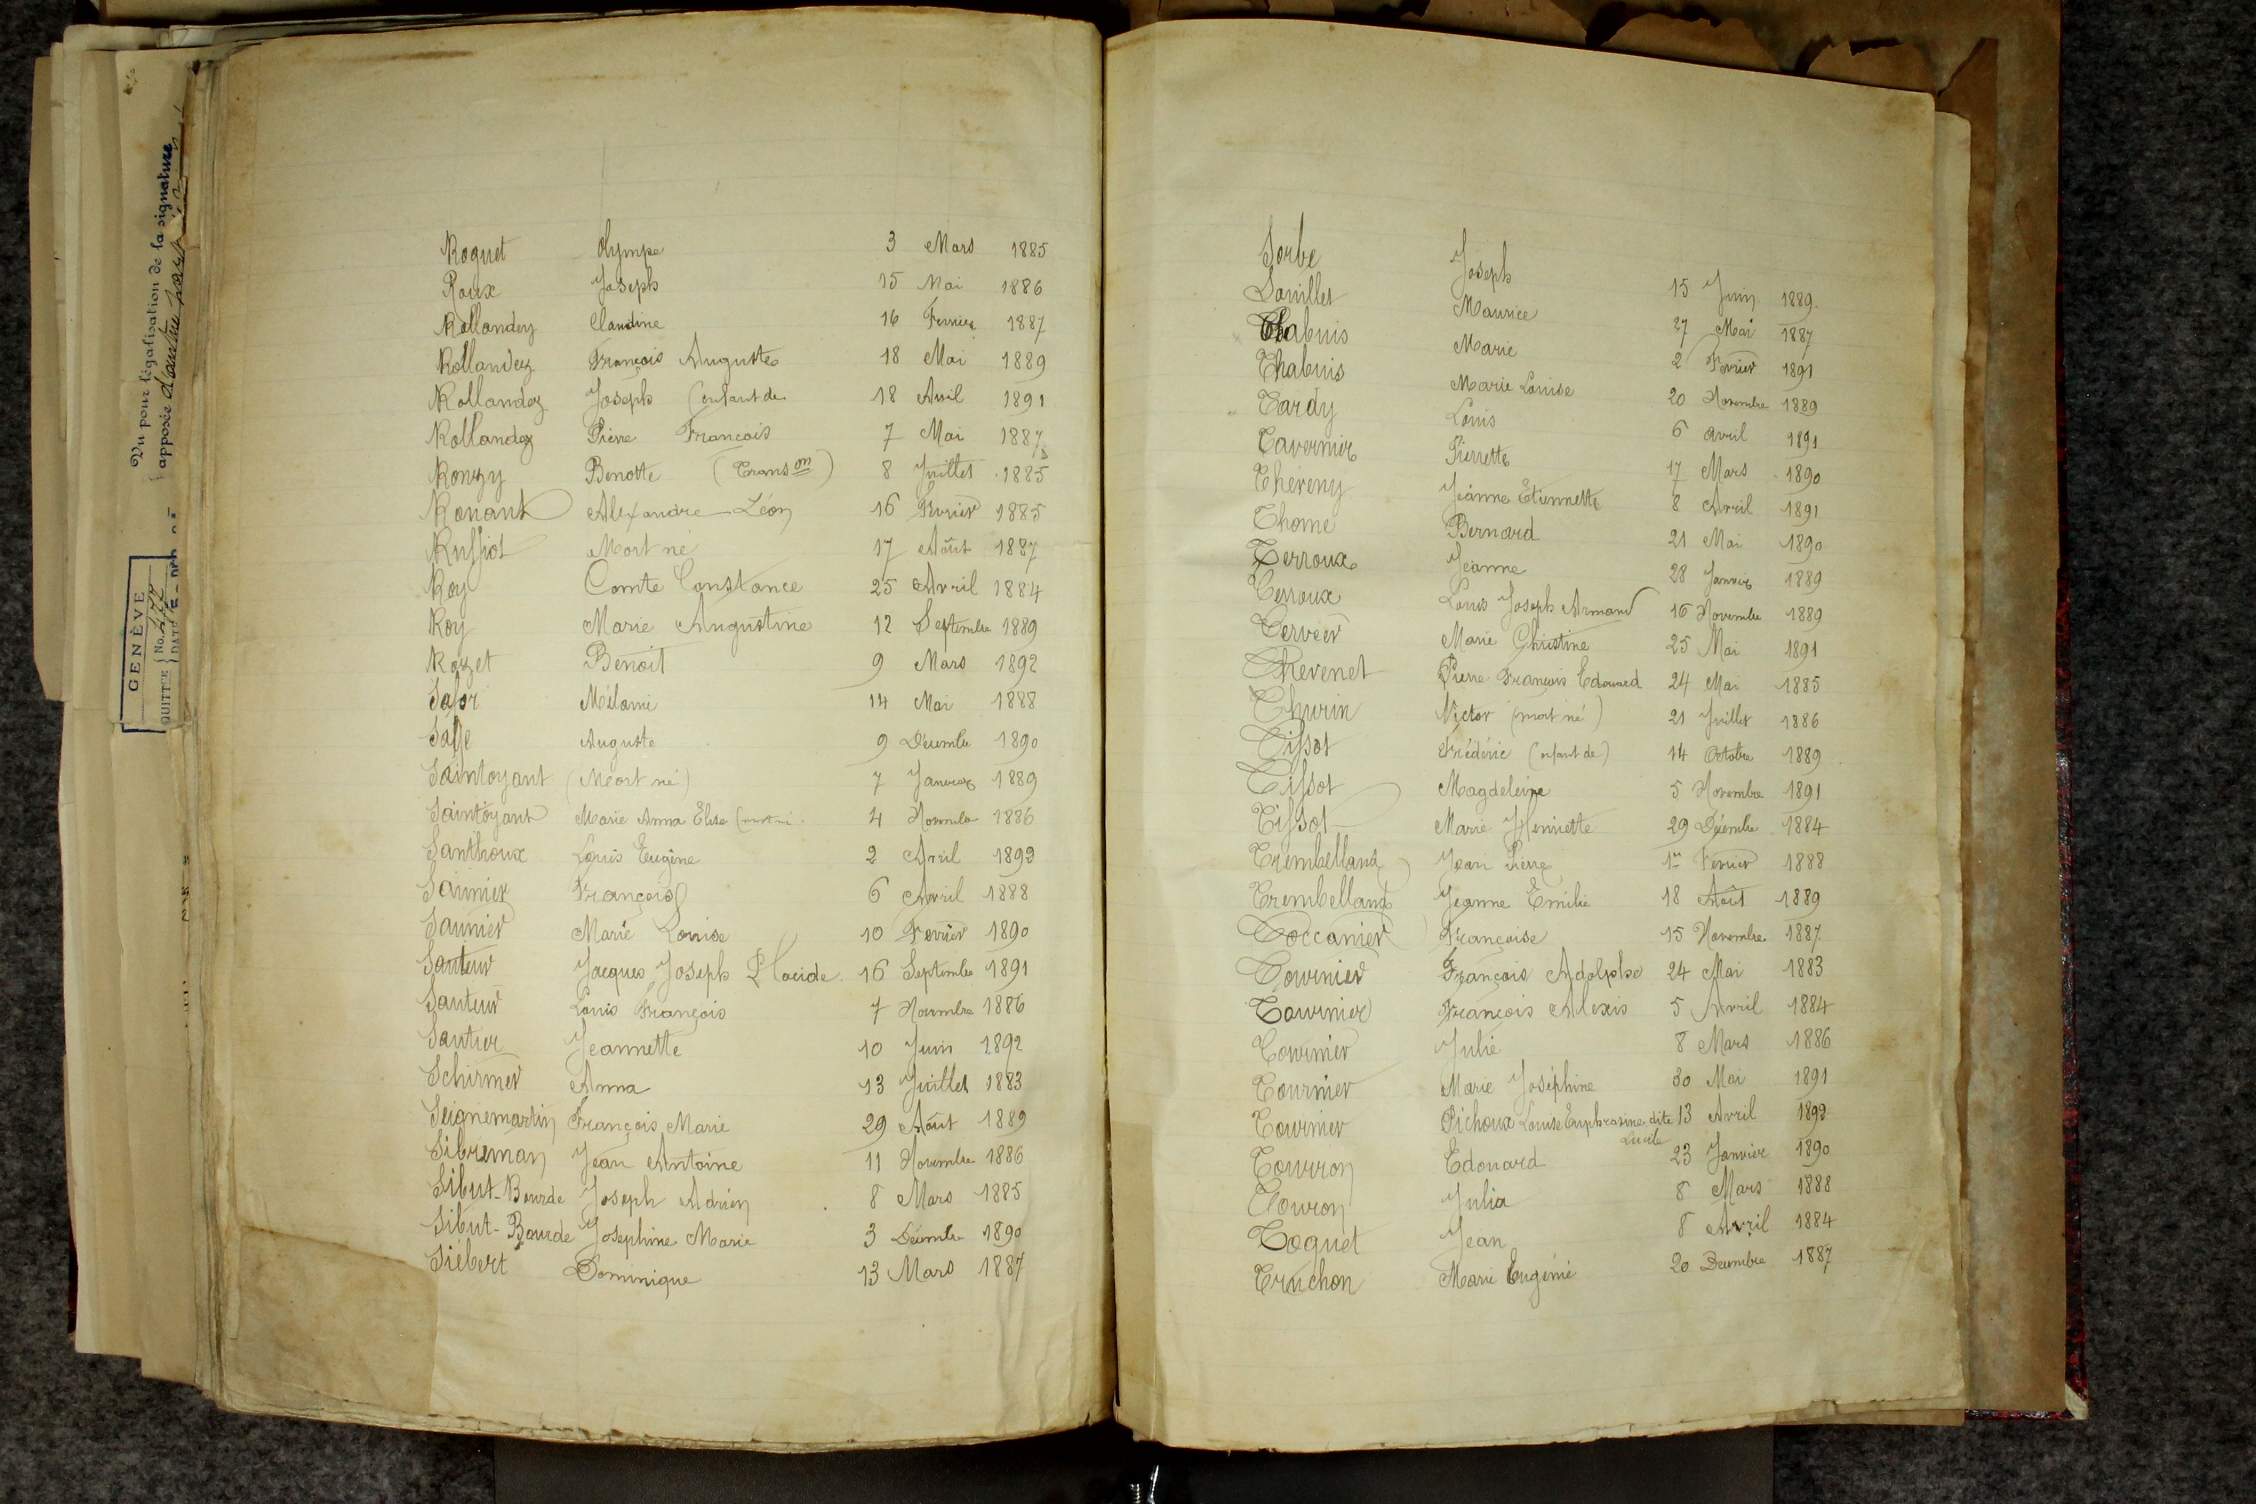 Vu pour légalisation de la signature
apposée d'autre part
GENÈVE
QUITT'E No. 477
DATE
Roguet Olympe 3 Mars 1885
Roux Joseph 15 Mai 1886
Rollandez Claudine 16 Fevrier 1887
Rollandez François Auguste 18 Mai 1889
Rollandez Joseph (enfant de 18 Avril 1891
Rollandez Pierre François 7 Mai 1887
Ronzy Benotte (Trans on) 8 Juillet 1885
Ronant Alexandre Léon 16 Fevrier 1885
Ruffiot Mort né 17 Août 1887
Roy Comte Constance 25 Avril 1884
Roy Marie Augustine 12 Septembre 1889
Rozet Benoit 9 Mars 1892
Mélanie 14 Mai 1888
Auguste 9 Décembre 1890
Saintoyant (Mort né) 7 Janvier 1889
Saintoyant Marie Anna Elise (mort né 4 Novembre 1886
Santhoux Louis Eugène 2 Avril 1892
Saunier François 6 Avril 1888
Saunier Marie Louise 10 Fevrier 1890
Sauteur Jacques Joseph Placide 16 Septembre 1891
Sauteur Louis François 7 Novembre 1886
Sautier Jeannette 10 Juin 1892
Schirmer Anna 13 Juillet 1883
Seignemartin François Marie 29 Août 1889
Sibreman Jean Antoine 11 Novembre 1886
Sibut-Bourde Joseph Adrien 8 Mars 1885
Sibut-Bourde Josephine Marie 3 Décembre 1890
Siébert Dominique 13 Mars 1887
Sorbe Joseph 15 Juin 1889
Souillet Maurice 27 Mai 1887
Thabuis Marie 2 Fevrier 1891
Thabuis Marie Louise 20 Novembre 1889
Tardy Louis 6 avril 1891
Tavernier Pierrette 17 Mars 1890
Théreny Jeanne Etiennette 8 Avril 1891
Thome Bernard 21 Mai 1890
Terroux Jeanne 28 Janvier 1889
Terroux Louis Joseph Armand 16 Novembre 1889
Tervier Marie Christine 25 Mai 1891
Thevenet Pierre François Edouard 24 Mai 1885
Thurin Victor (mort né) 21 Juillet 1886
Tissot Frédéric (enfant de) 14 Octobre 1889
Tissot Magdeleine 5 Novembre 1891
Tissot Marie Henriette 29 Décembre 1884
Trembelland Jean Pierre 1er Fevrier 1888
Trembelland Jeanne Emilie 18 Août 1889
Toccanier Françoise 15 Novembre 1887
Tournier François Adolphe 24 Mai 1883
Tournier François Alexis 5 Avril 1884
Tournier Julie 8 Mars 1886
Tournier Marie Joséphine 30 Mai 1891
Tournier Pichoux Louise Euphrasine dite 13 Avril 1892
Lucile
Tourron Edouard 23 Janvier 1890
Touron Julia 8 Mars 1888
Toguet Jean 8 Avril 1884
Truchon Marie Eugénie 20 Decembre 1887